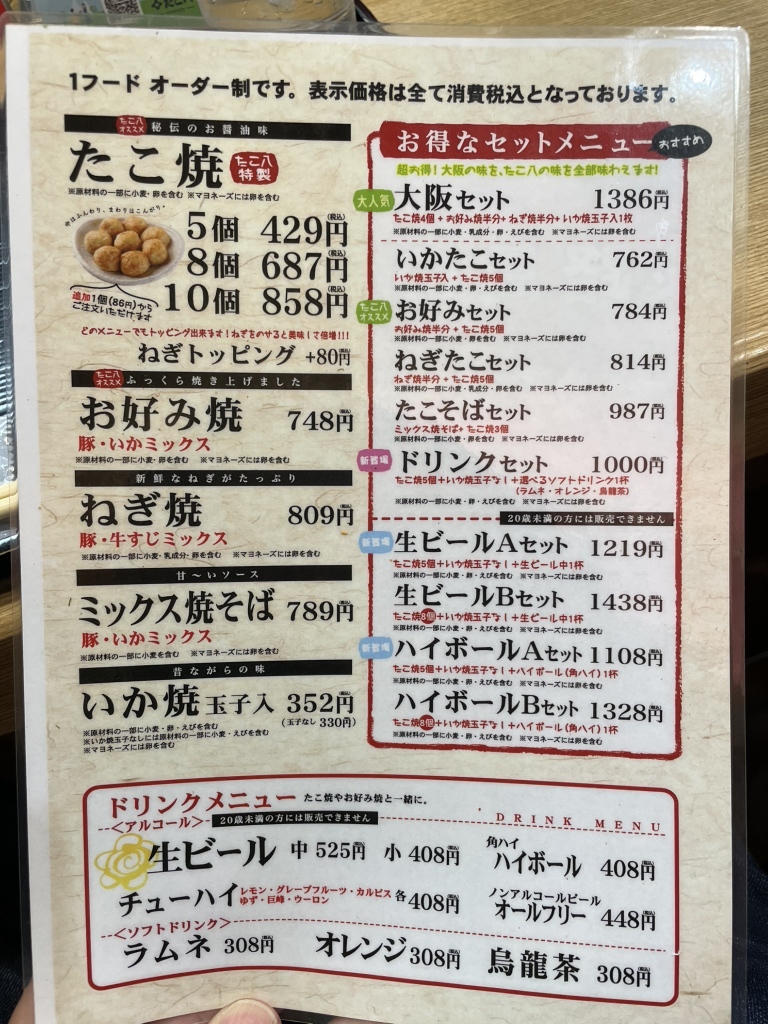 1フード オーダー制です。表示価格は全て消費税込となっております。
たこ八オススメ 秘伝のお醤油味
たこ焼 たこ八特製
※原材料の一部に小麦・卵を含む ※マヨネーズには卵を含む
中はふんわり、まわりはこんがり。
5個 429円(税込)
8個 687円(税込)
10個 858円(税込)
追加1個(86円)から
ご注文いただけます
どのメニューでもトッピング出来ます!ねぎをのせると美味しさ倍増!!!
ねぎトッピング +80円(税込)
たこ八オススメ ふっくら焼き上げました
お好み焼 748円(税込)
豚・いかミックス
※原材料の一部に小麦・卵を含む ※マヨネーズには卵を含む
新鮮なねぎがたっぷり
ねぎ焼 809円(税込)
豚・牛すじミックス
※原材料の一部に小麦・乳成分・卵を含む ※マヨネーズには卵を含む
甘〜いソース
ミックス焼そば 789円(税込)
豚・いかミックス
※原材料の一部に小麦を含む ※マヨネーズには卵を含む
昔ながらの味
いか焼 玉子入 352円(税込)
(玉子なし 330円)
※原材料の一部に小麦・卵・えびを含む
※いか焼玉子なしには原材料の一部に小麦・えびを含む
※マヨネーズには卵を含む
お得なセットメニュー おすすめ
超お得!大阪の味を、たこ八の味を全部味わえます!
大人気 大阪セット 1386円(税込)
たこ焼4個+お好み焼半分+ねぎ焼半分+いか焼玉子入1枚
※原材料の一部に小麦・乳成分・卵・えびを含む ※マヨネーズには卵を含む
いかたこセット 762円(税込)
いか焼玉子入+たこ焼5個
※原材料の一部に小麦・卵・えびを含む ※マヨネーズには卵を含む
たこ八オススメ お好みセット 784円(税込)
お好み焼半分+たこ焼5個
※原材料の一部に小麦・卵を含む ※マヨネーズには卵を含む
ねぎたこセット 814円(税込)
ねぎ焼半分+たこ焼5個
※原材料の一部に小麦・乳成分・卵を含む ※マヨネーズには卵を含む
たこそばセット 987円(税込)
ミックス焼そば+たこ焼3個
※原材料の一部に小麦・卵を含む ※マヨネーズには卵を含む
新登場 ドリンクセット 1000円(税込)
たこ焼5個+いか焼玉子なし+選べるソフトドリンク1杯
(ラムネ・オレンジ・烏龍茶)
※原材料の一部に小麦・卵・えびを含む ※マヨネーズには卵を含む
20歳未満の方には販売できません
新登場 生ビールAセット 1219円(税込)
たこ焼5個+いか焼玉子なし+生ビール中1杯
※原材料の一部に小麦・卵・えびを含む ※マヨネーズには卵を含む
生ビールBセット 1438円(税込)
たこ焼8個+いか焼玉子なし+生ビール中1杯
※原材料の一部に小麦・卵・えびを含む ※マヨネーズには卵を含む
新登場 ハイボールAセット 1108円(税込)
たこ焼5個+いか焼玉子なし+ハイボール(角ハイ)1杯
※原材料の一部に小麦・卵・えびを含む ※マヨネーズには卵を含む
ハイボールBセット 1328円(税込)
たこ焼8個+いか焼玉子なし+ハイボール(角ハイ)1杯
※原材料の一部に小麦・卵・えびを含む ※マヨネーズには卵を含む
ドリンクメニュー たこ焼やお好み焼と一緒に。
<アルコール> 20歳未満の方には販売できません DRINK MENU
生ビール 中 525円(税込) 小 408円(税込)
角ハイ
ハイボール 408円(税込)
チューハイ レモン・グレープフルーツ・カルピス
ゆず・巨峰・ウーロン
各408円(税込)
ノンアルコールビール
オールフリー 448円(税込)
<ソフトドリンク>
ラムネ 308円(税込) オレンジ 308円(税込) 烏龍茶 308円(税込)